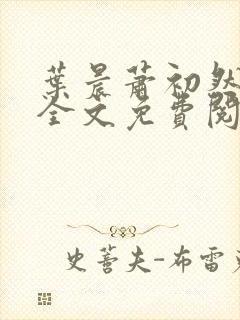 葉晨蕭初然
全文免費閱
史蒂夫-布雷